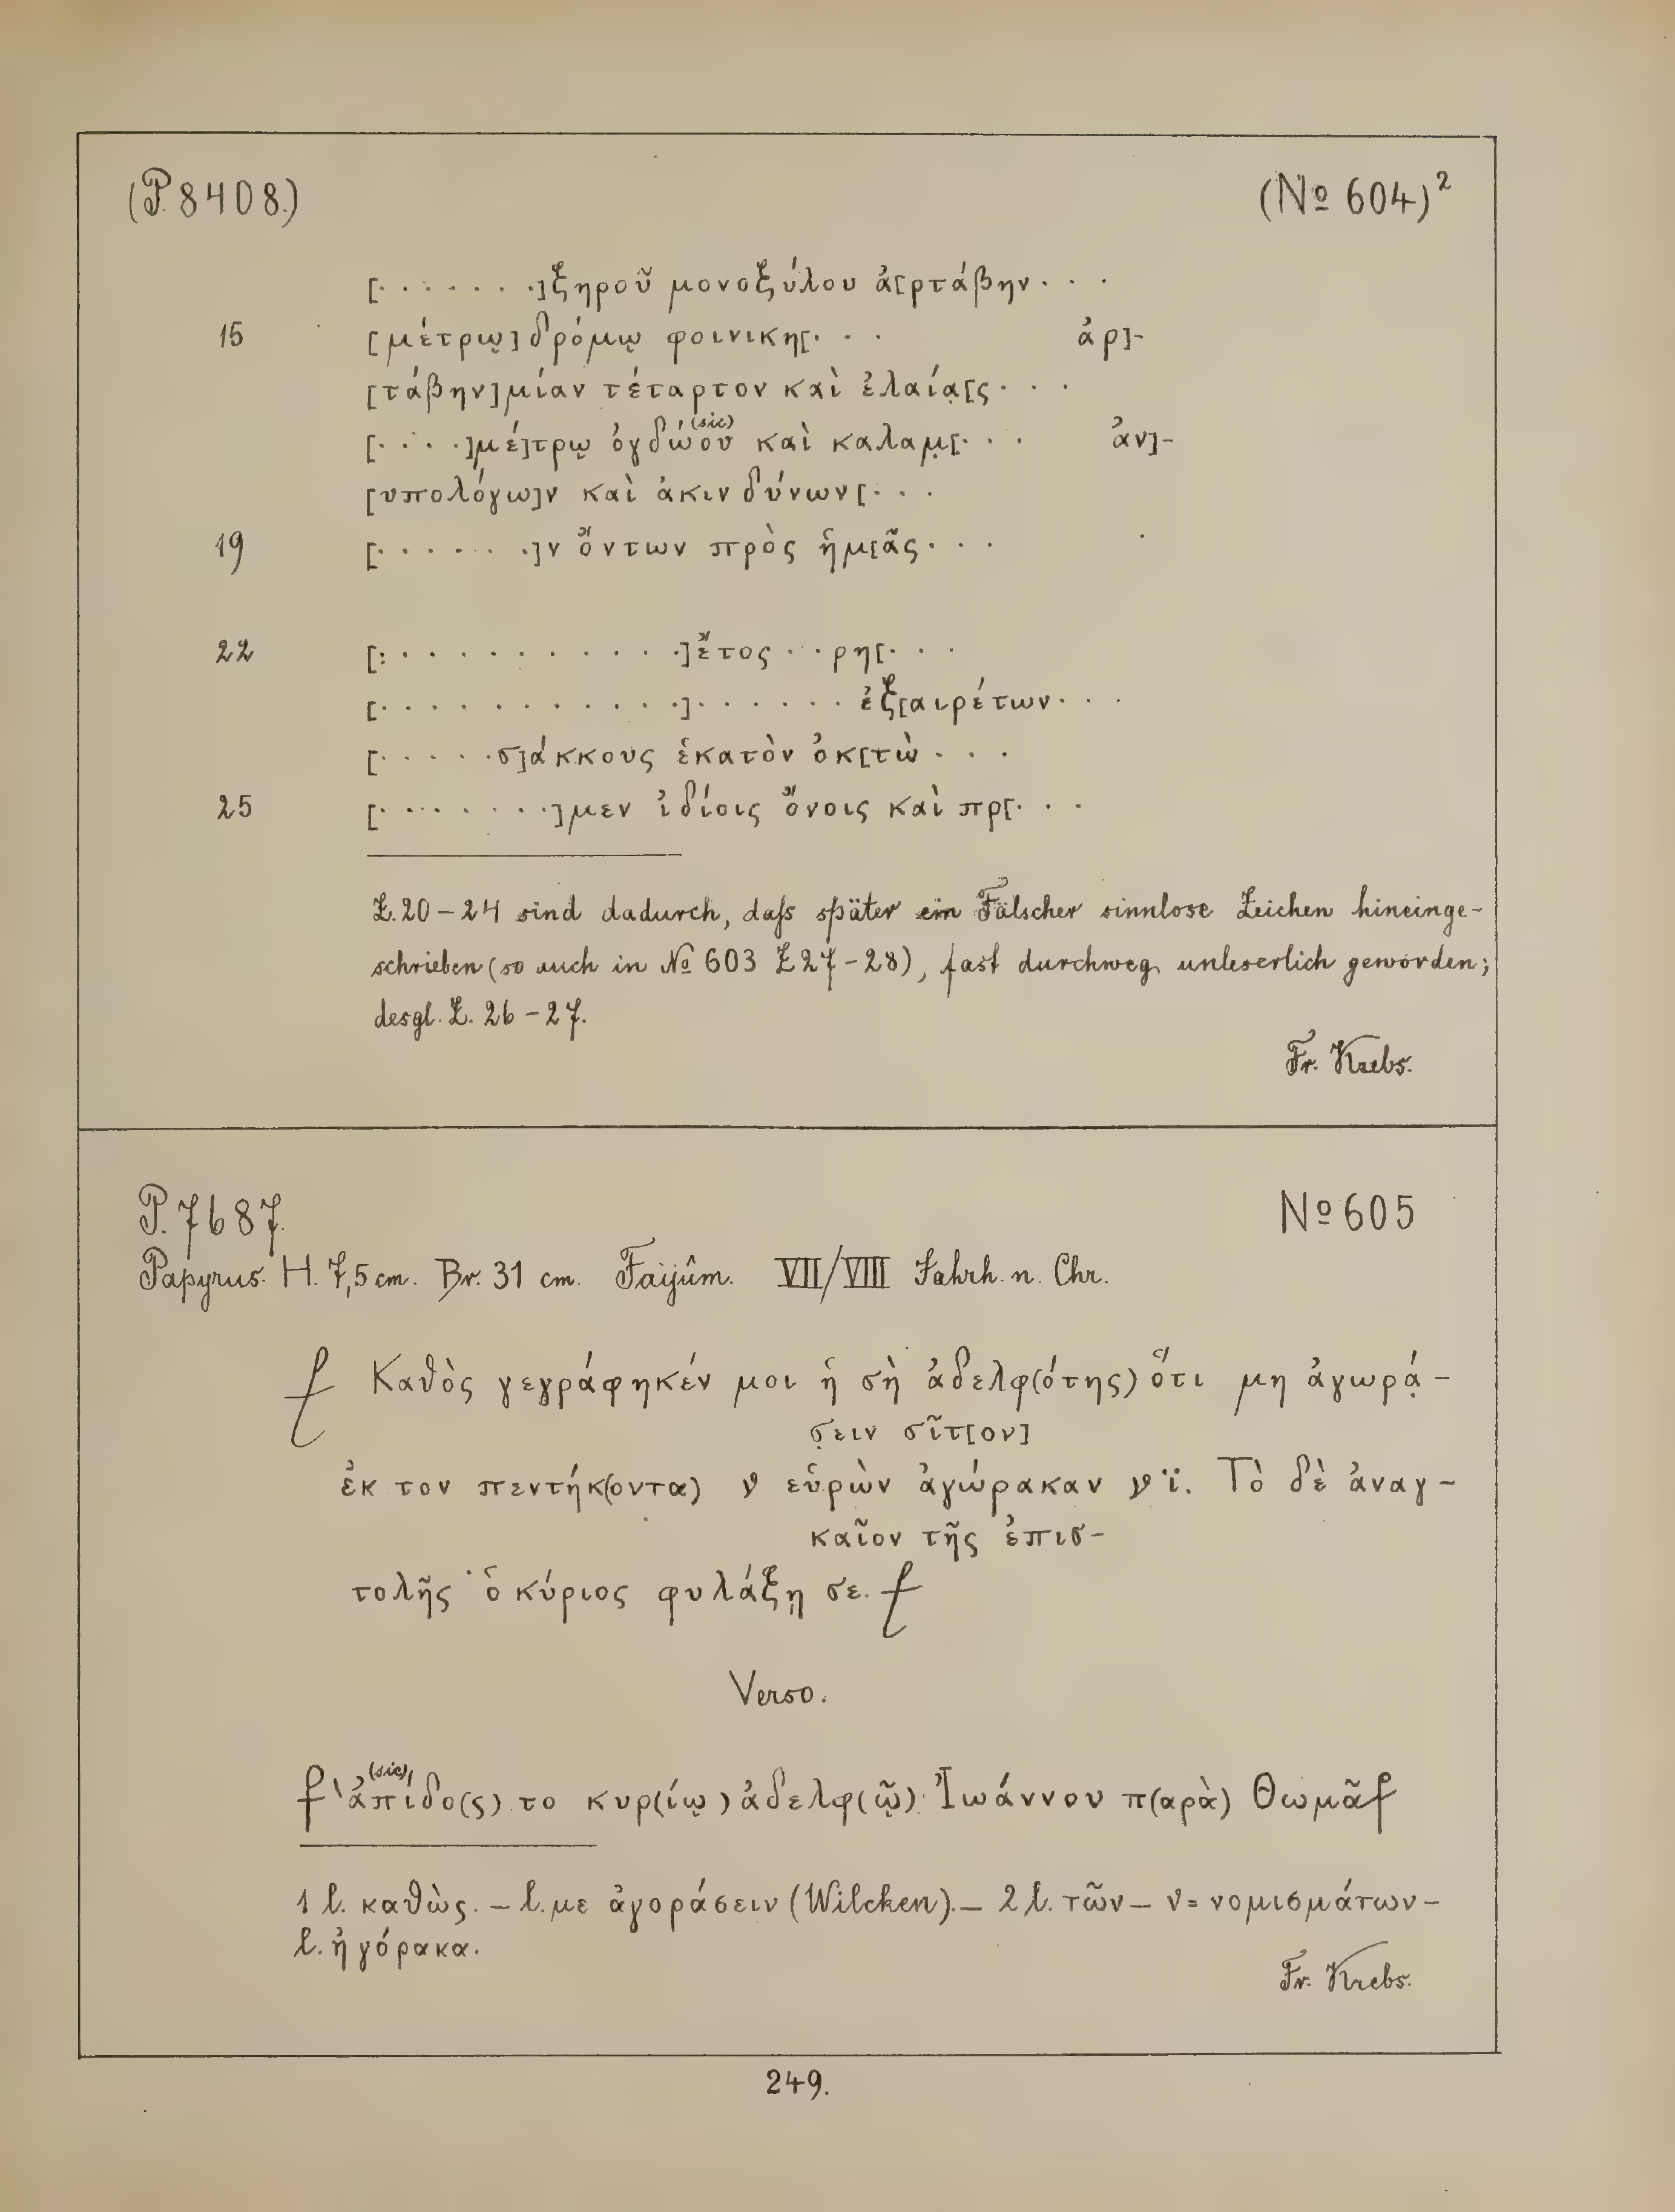 (P. 8408.) (№ 604)²
[. . . . . . .]ξηροῦ μονοξύλου ἀ[ρτάβην . . .
15 [μέτρῳ] δρόμῳ φοινικη[. . . ἀρ]-
[τάβην] μίαν τέταρτον καὶ ἐλαία̣[ς . . .
[. . . .]μέ]τρῳ ὀγδώου (sic) καὶ καλαμ̣[. . . ἀν]-
[υπολόγω]ν καὶ ἀκινδύνων[. . .
19 [. . . . . . .]ν ὄντων πρὸς ἡμ[ᾶς . . .
22 [: . . . . . . . . . . .]ἔτος . . . ρη[. . .
[. . . . . . . . . . . .] . . . . . . ἐξ[αιρέτων . . .
[. . . . . σ]άκκους ἑκατὸν ὀκ[τὼ . . .
25 [. . . . . . . .]μεν ἰδίοις ὄνοις καὶ πρ[. . .
Z. 20–24 sind dadurch, daſs später ein Fälscher sinnlose Zeichen hineinge-
schrieben (so auch in № 603 Z 27–28), fast durchweg unleserlich geworden;
desgl. Z. 26–27.
Fr. Krebs.
P. 7687. № 605
Papyrus. H. 7,5 cm. Br. 31 cm. Faijûm. VII/VIII Jahrh. n. Chr.
⳨ Καθὸς γεγράφηκέν μοι ἡ σὴ ἀδελφ(ότης) ὅτι μη ἀγωρά̣-
σ̣ειν σῖτ[ον]
ἐκ τον πεντήκ(οντα) ν εὑρὼν ἀγώρακαν ν ϊ. Τὸ δὲ ἀναγ-
καῖον τῆς ἐπισ-
τολῆς ˙ ὁ κύριος φυλάξῃ σε. ⳨
Verso.
⳨ ἀπίδο(ς) (sic) το κυρ(ίῳ) ἀδελφ(ῷ) Ἰωάννου π(αρὰ) Θωμᾶ ⳨
1 l. καθὼς. – l. με ἀγοράσειν (Wilcken). – 2 l. τῶν – ν = νομισμάτων –
l. ἠγόρακα.
Fr. Krebs.
249.